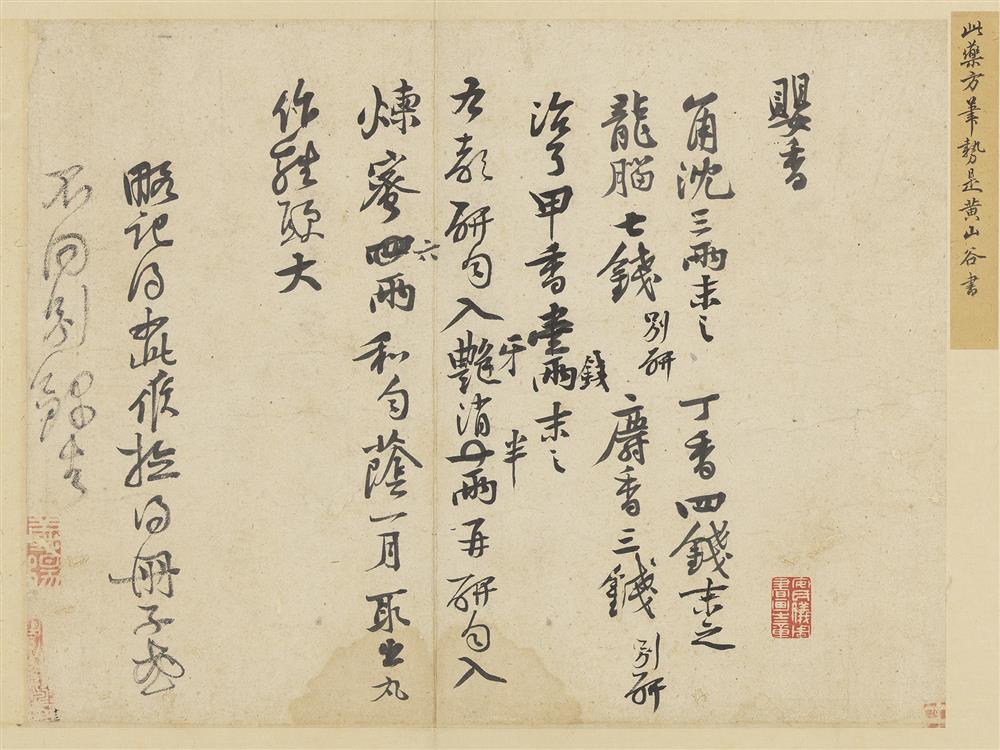 此藥方筆勢是黃山谷書
嬰香
角沈三兩末之 丁香四錢末之
龍腦七錢別研 麝香三錢別研
治了甲香壹錢末之
右都研勻入牙消半兩再研勻入
煉蜜六兩和勻蔭一月取出丸
作雞頭大
略記得如此候撿得冊子或
不同別錄去
安氏儀周書畫之章